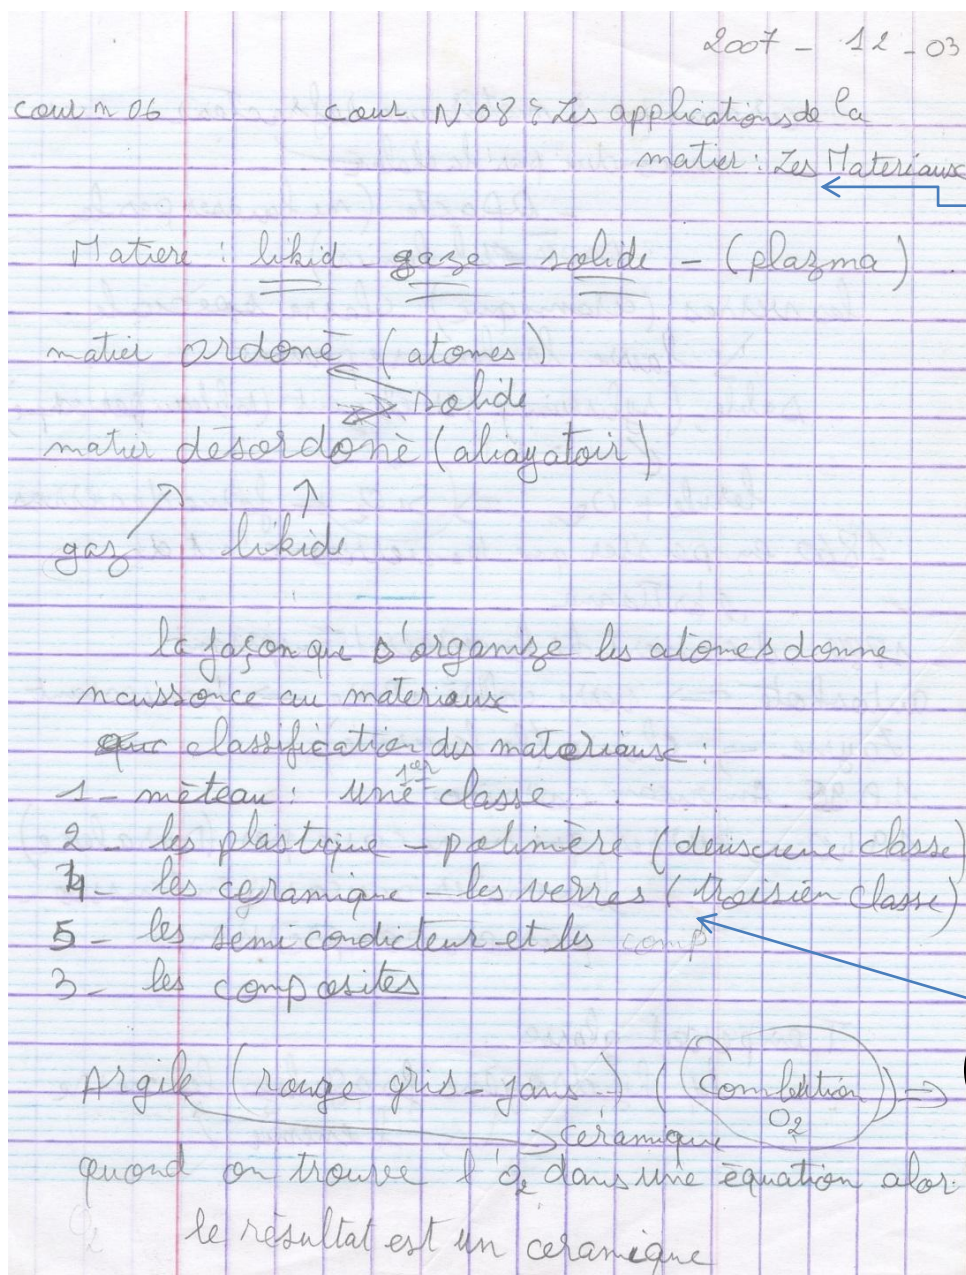 2007 - 12 - 03
cour n 06 cour N 08 : Les applications de la
matier : Les Materiaux
Matiere : likid - gaze - solide - (plazma)
matier ordoné (atomes)
solide
matier désordoné (aliayatoir)
gaz likide
la façon que s'organize les atomes donne
naissonce au materiaux
classification des materiaux :
1 - méteau : une 1er classe
2 - les plastique - polimère (deuscieme classe)
4 - les ceramique - les verres (troisien classe)
5 - les semicondicteur et les comp
3 - les composites
Argile (rouge gris - jans) (Combution O2) ⇒
céramique
quond on trouve l'O2 dans une équation alor
O2 le résultat est un ceramique